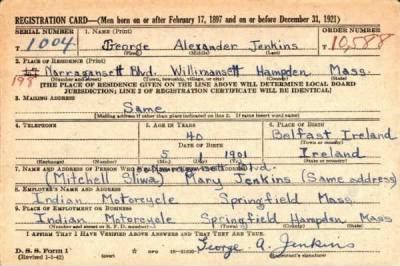 REGISTRATION CARD—(Men born on or after February 17, 1897 and on or before December 31, 1921)
SERIAL NUMBER 1. NAME (Print) ORDER NUMBER
1004 George Alexander Jenkins 10,588
(First) (Middle) (Last)
2. PLACE OF RESIDENCE (Print)
198 Narragansett Blvd. Willimansett Hampden Mass.
(Number and street) (Town, township, village, or city) (County) (State)
[THE PLACE OF RESIDENCE GIVEN ON THE LINE ABOVE WILL DETERMINE LOCAL BOARD
JURISDICTION; LINE 2 OF REGISTRATION CERTIFICATE WILL BE IDENTICAL]
3. MAILING ADDRESS
Same
[Mailing address if other than place indicated on line 2. If same insert word same]
4. TELEPHONE 5. AGE IN YEARS 6. PLACE OF BIRTH
40 Belfast Ireland
DATE OF BIRTH (Town or county)
5 1901 Ireland
(Exchange) (Number) (Mo.) (Day) (Yr.) (State or country)
7. NAME AND ADDRESS OF PERSON WHO Blvd.
(Mitchell Sliwa) Mary Jenkins (Same address)
8. EMPLOYER'S NAME AND ADDRESS
Indian Motorcycle Springfield Mass.
9. PLACE OF EMPLOYMENT OR BUSINESS
Indian Motorcycle Springfield Hampden Mass
(Number and street or R. F. D. number) (Town) (County) (State)
I AFFIRM THAT I HAVE VERIFIED ABOVE ANSWERS AND THAT THEY ARE TRUE.
D. S. S. Form 1
(Revised 1-1-42) George A. Jenkins